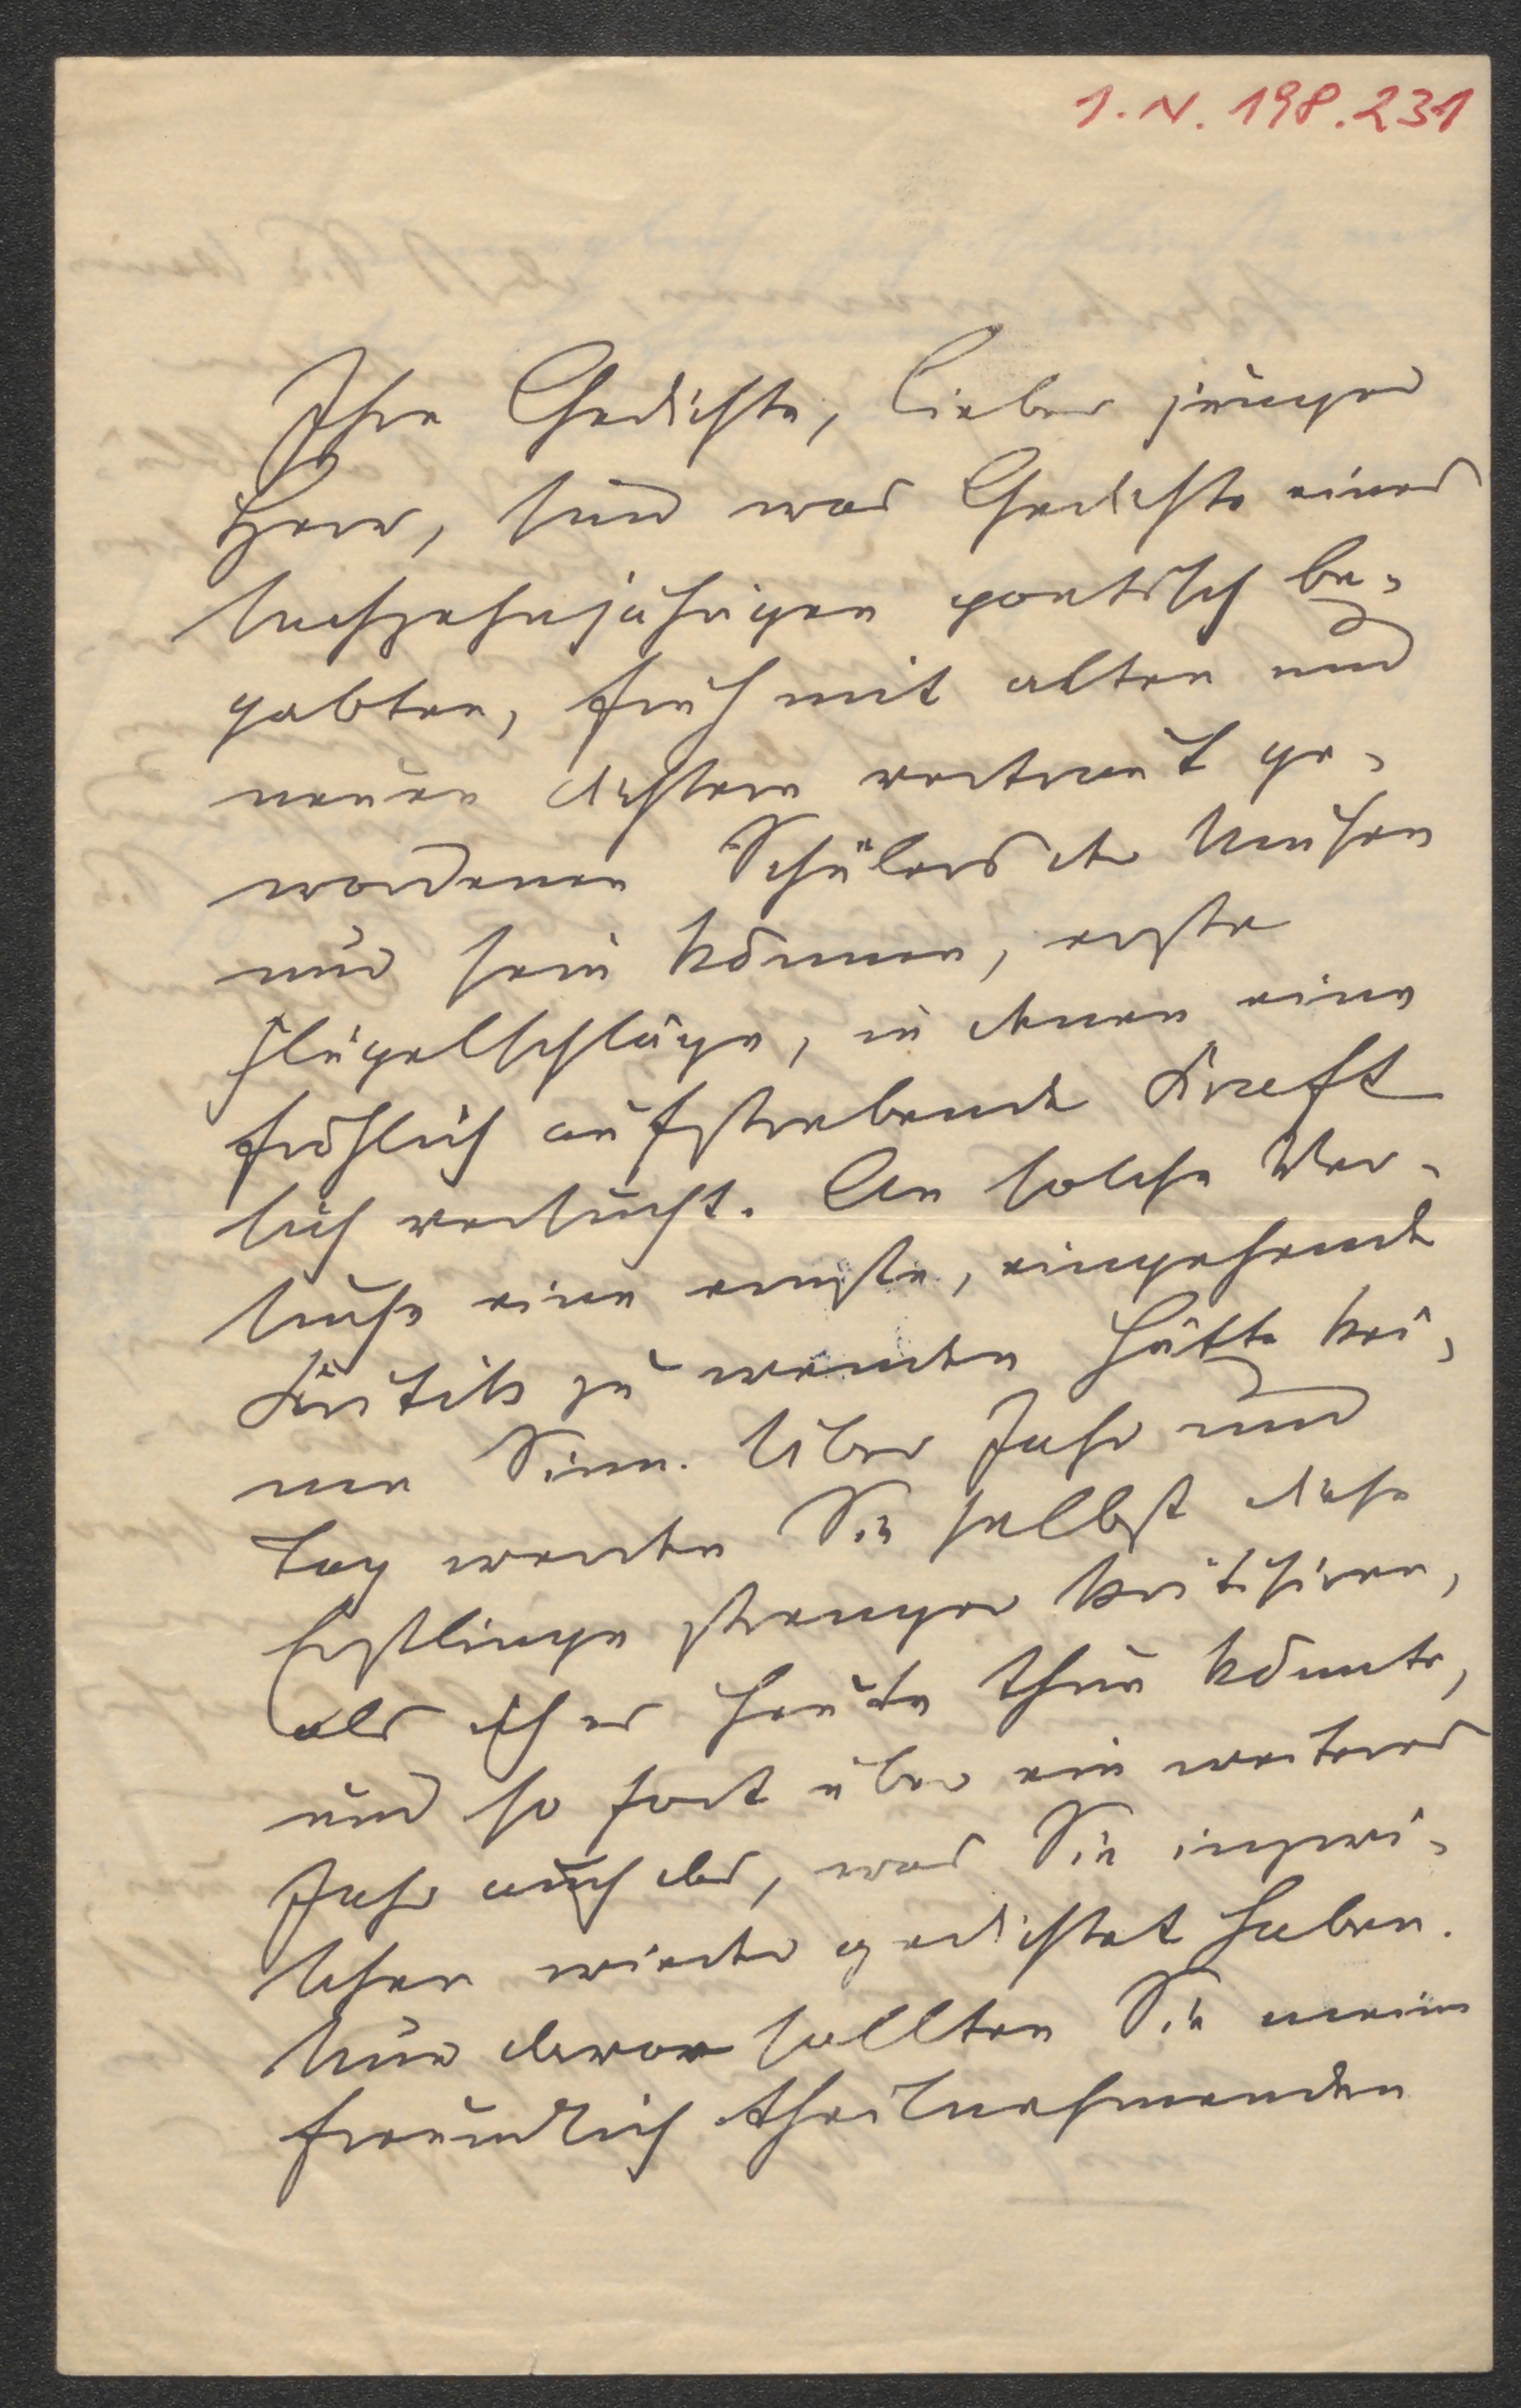 I. N. 198.231
Ihre Gedichte, lieber junger
Herr, sind was Gedichte eines
sechzehnjährigen poetisch be-
gabten, früh mit alten und
neuen Dichtern vertraut ge-
wordenen Schülers der Musen
nur sein können, erste
Flügelschläge, in denen eine
fröhlich aufstrebende Kraft
sich versucht. An solche Ver-
suche eine ernste, eingehende
Kritik zu wenden hätte kei-
nen Sinn. Über Jahr und
Tag werden Sie selbst diese
Erstlinge strenger kritisiren,
als ich es heute thun könnte,
und so fort über ein weiteres
Jahr auch das, was Sie inzwi-
schen wieder gedichtet haben.
Nur davor sollten Sie meine
freundlich theilnehmenden